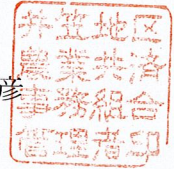 彦
井笠地区
農業共済
事務組合
管理者印